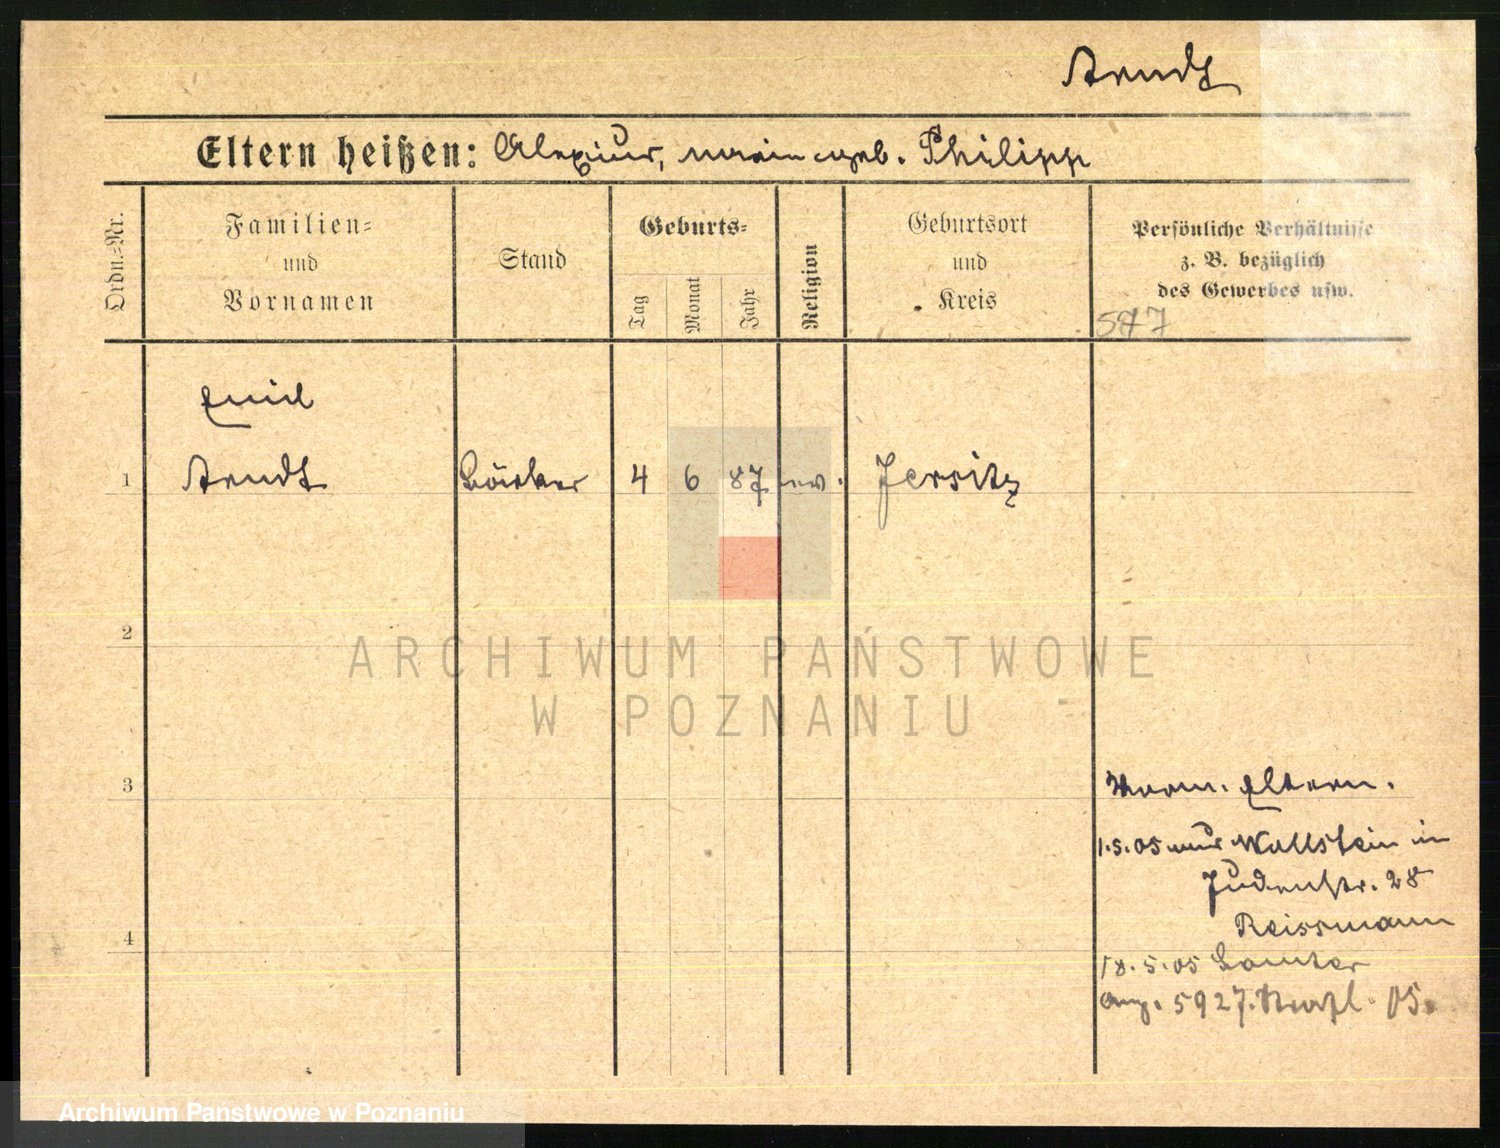 Arndt
Eltern heißen: Alexius, geb. Philipp
Ordn.-Nr.
Familien-
und
Vornamen
Stand
Geburts-
Tag
Monat
Jahr
Religion
Geburtsort
und
Kreis
Persönliche Verhältnisse
z. B. bezüglich
des Gewerbes usw.
577
Emil
1 Arndt Bäcker 4 6 87 ev. Jersitz
2
3
Eltern.
1.5.05 aus Wollstein in
Judenstr. 28
Reissmann
4
18.5.05 Samter
5927. 05.
ARCHIWUM PAŃSTWOWE
W POZNANIU
Archiwum Państwowe w Poznaniu